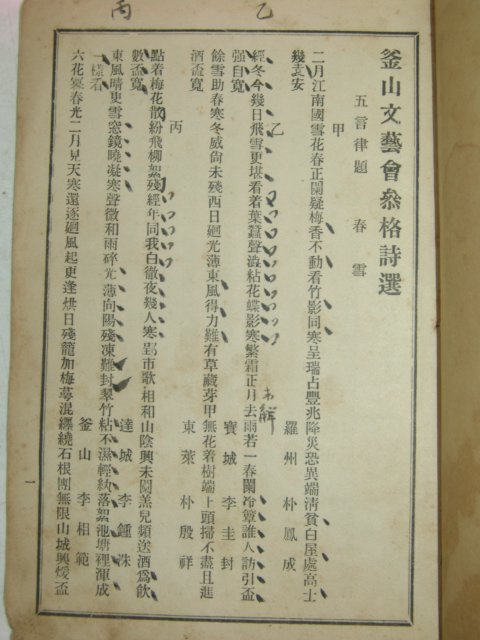 乙
丙
釜山文藝會叅格詩選
五言律題 春雪
甲
二月江南國雪花春正闌疑梅香不動看竹影同寒呈瑞占豐兆降災恐異端淸貧白屋處高士
幾袁安 羅州 朴鳳成
乙
經冬今幾日飛雪更堪看着葉蠶聲澁粘花蝶影寒繁霜正月去雨若一春闌冷簟誰人訪引盃
强自寬 寶城 李圭封
餘雪助春寒冬威尙未殘西日廻光薄東風得力難有草藏芽甲無花着樹端上頭掃不盡且進
酒盃寬 東萊 朴殷祥
丙
點着梅花散紛飛柳絮殘經年同我白徹夜幾人寒郢市歌相和山陰興未闌羔兒頻送酒爲飮
數盃寬 達城 李鍾洙
東風晴更雪窓鏡曉凝寒聲微和雨碎光薄向陽殘凍難封翠竹粘不濕輕紈落絮池塘裡渾成
一樣看 釜山 李相範
六花 春光二月見天寒還逐廻風起更逢烘日殘籠加梅蕚混 繞石根團無限山城興煖盃
一